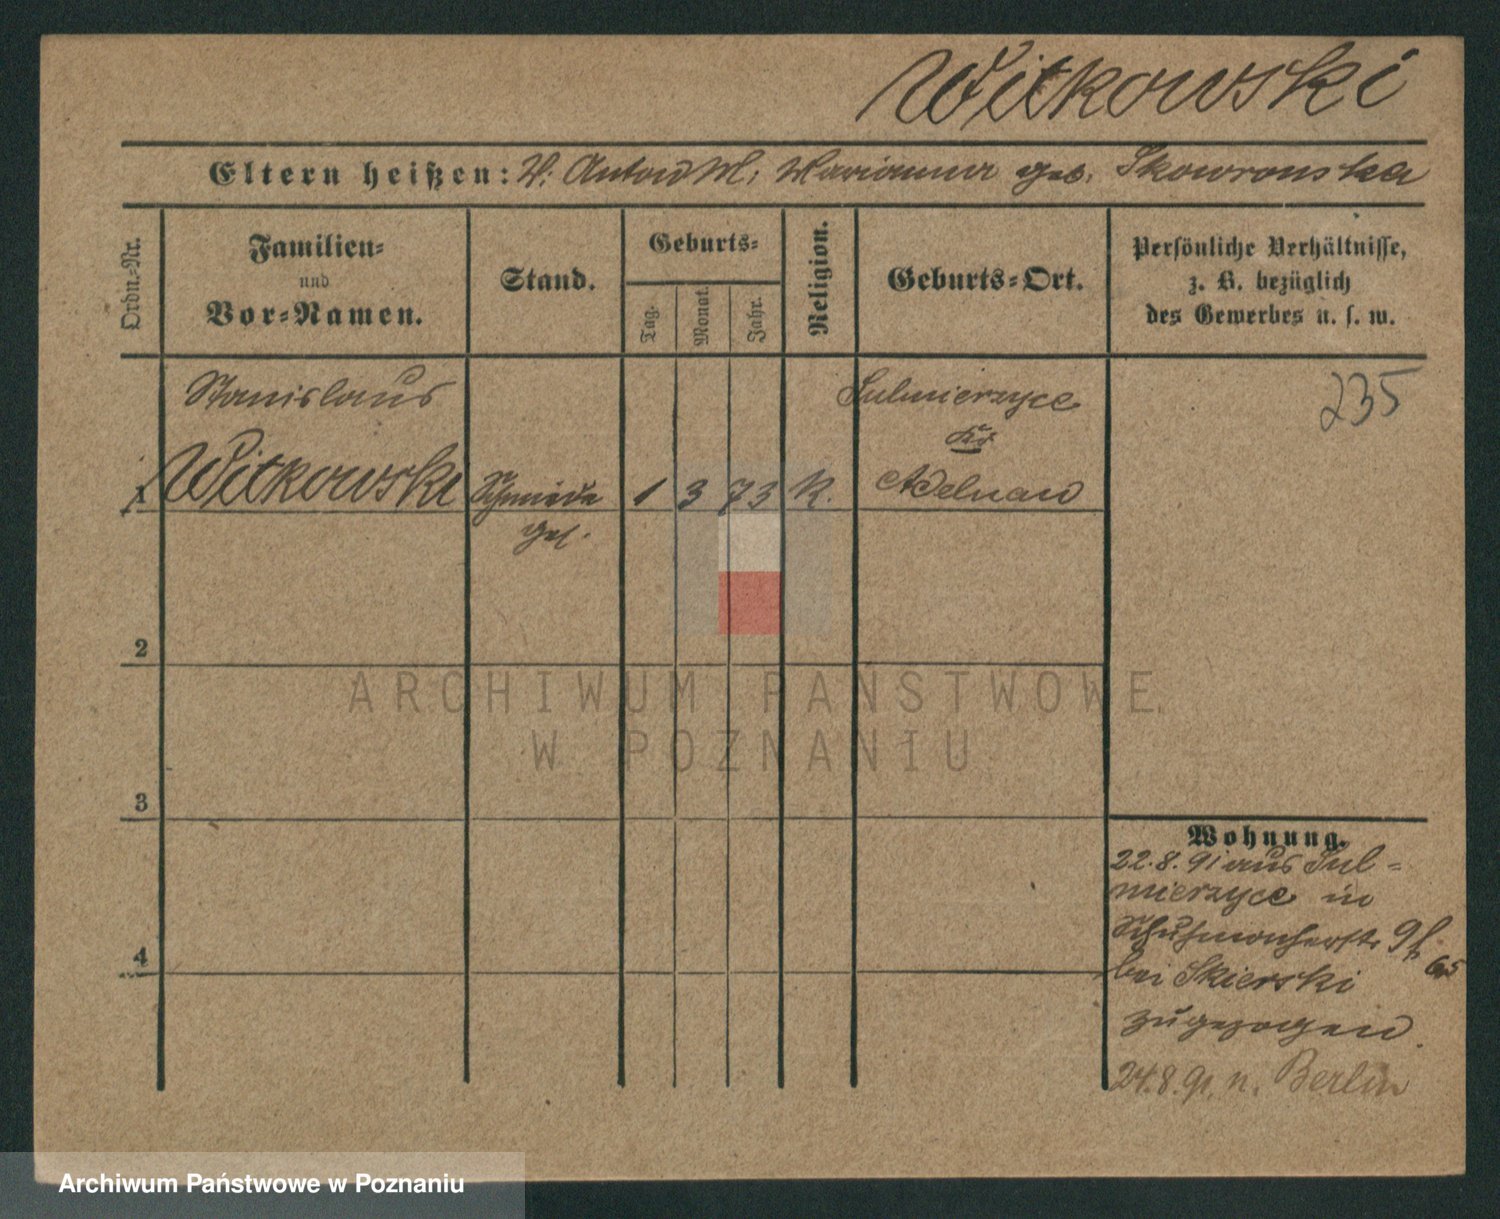 Witkowski
Eltern heißen: V: Anton M: Marianna geb. Skowronska
Ordn.-Nr.
Familien-
und
Vor-Namen.
Stand.
Geburts-
Tag.
Monat.
Jahr.
Religion.
Geburts-Ort.
Persönliche Verhältnisse,
z. B. bezüglich
des Gewerbes u. s. w.
235
Stanislaus
Witkowski
1
Schmiede
ges.
1 3 73 K.
Sulmierzyce
Kr.
Adelnau
2
3
4
Wohnung.
22.8.91 aus Sul-
mierzyce in
Schuhmacherstr 9
bei Skierski
zugezogen.
24.8.91. n. Berlin
ARCHIWUM PAŃSTWOWE
W POZNANIU
Archiwum Państwowe w Poznaniu